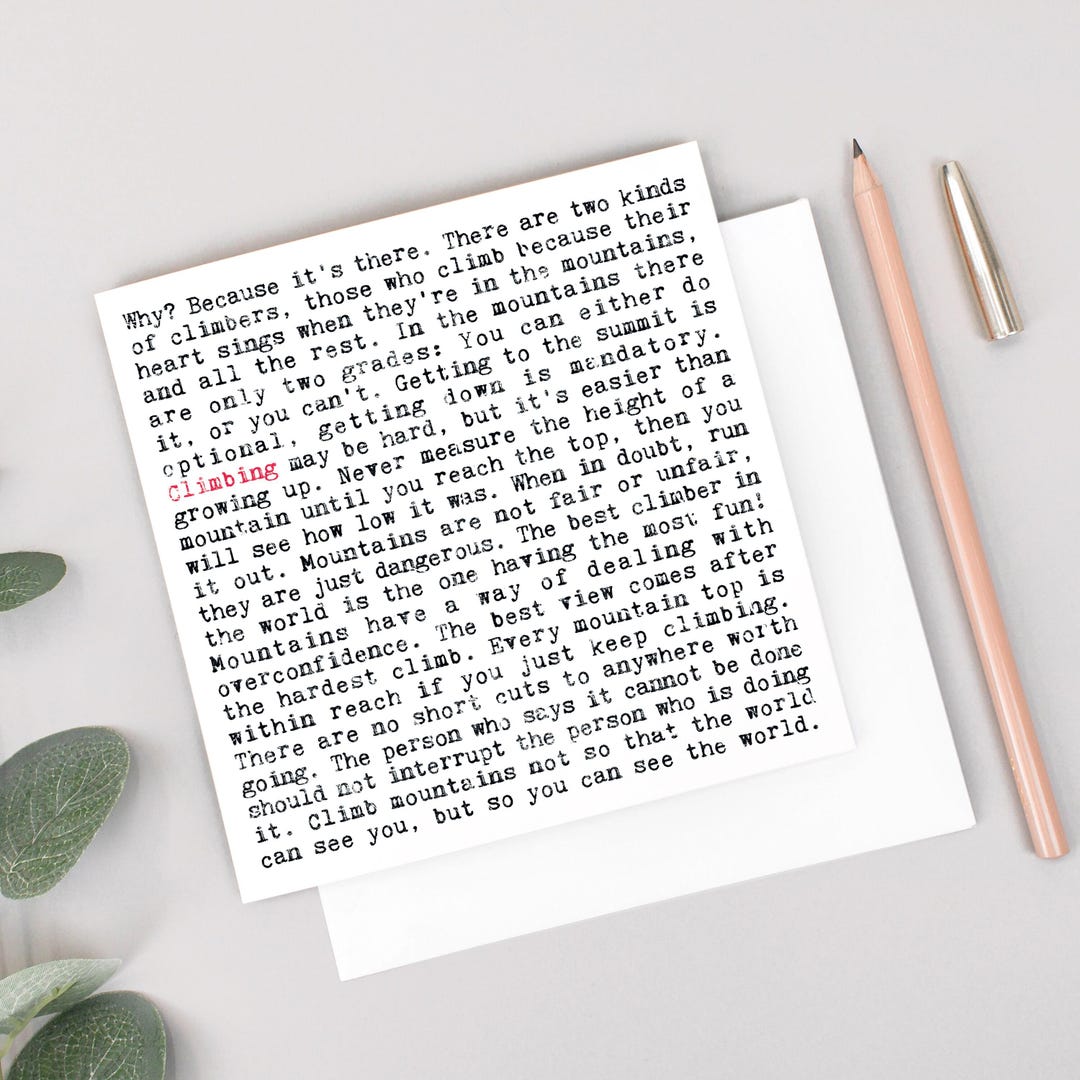 Why? Because it's there. There are two kinds
of climbers, those who climb because their
heart sings when they're in the mountains,
and all the rest. In the mountains there
are only two grades: You can either do
it, or you can't. Getting to the summit is
optional, getting down is mandatory.
Climbing may be hard, but it's easier than
growing up. Never measure the height of a
mountain until you reach the top, then you
will see how low it was. When in doubt, run
it out. Mountains are not fair or unfair,
they are just dangerous. The best climber in
the world is the one having the most fun!
Mountains have a way of dealing with
overconfidence. The best view comes after
the hardest climb. Every mountain top is
within reach if you just keep climbing.
There are no short cuts to anywhere worth
going. The person who says it cannot be done
should not interrupt the person who is doing
it. Climb mountains not so that the world
can see you, but so you can see the world.